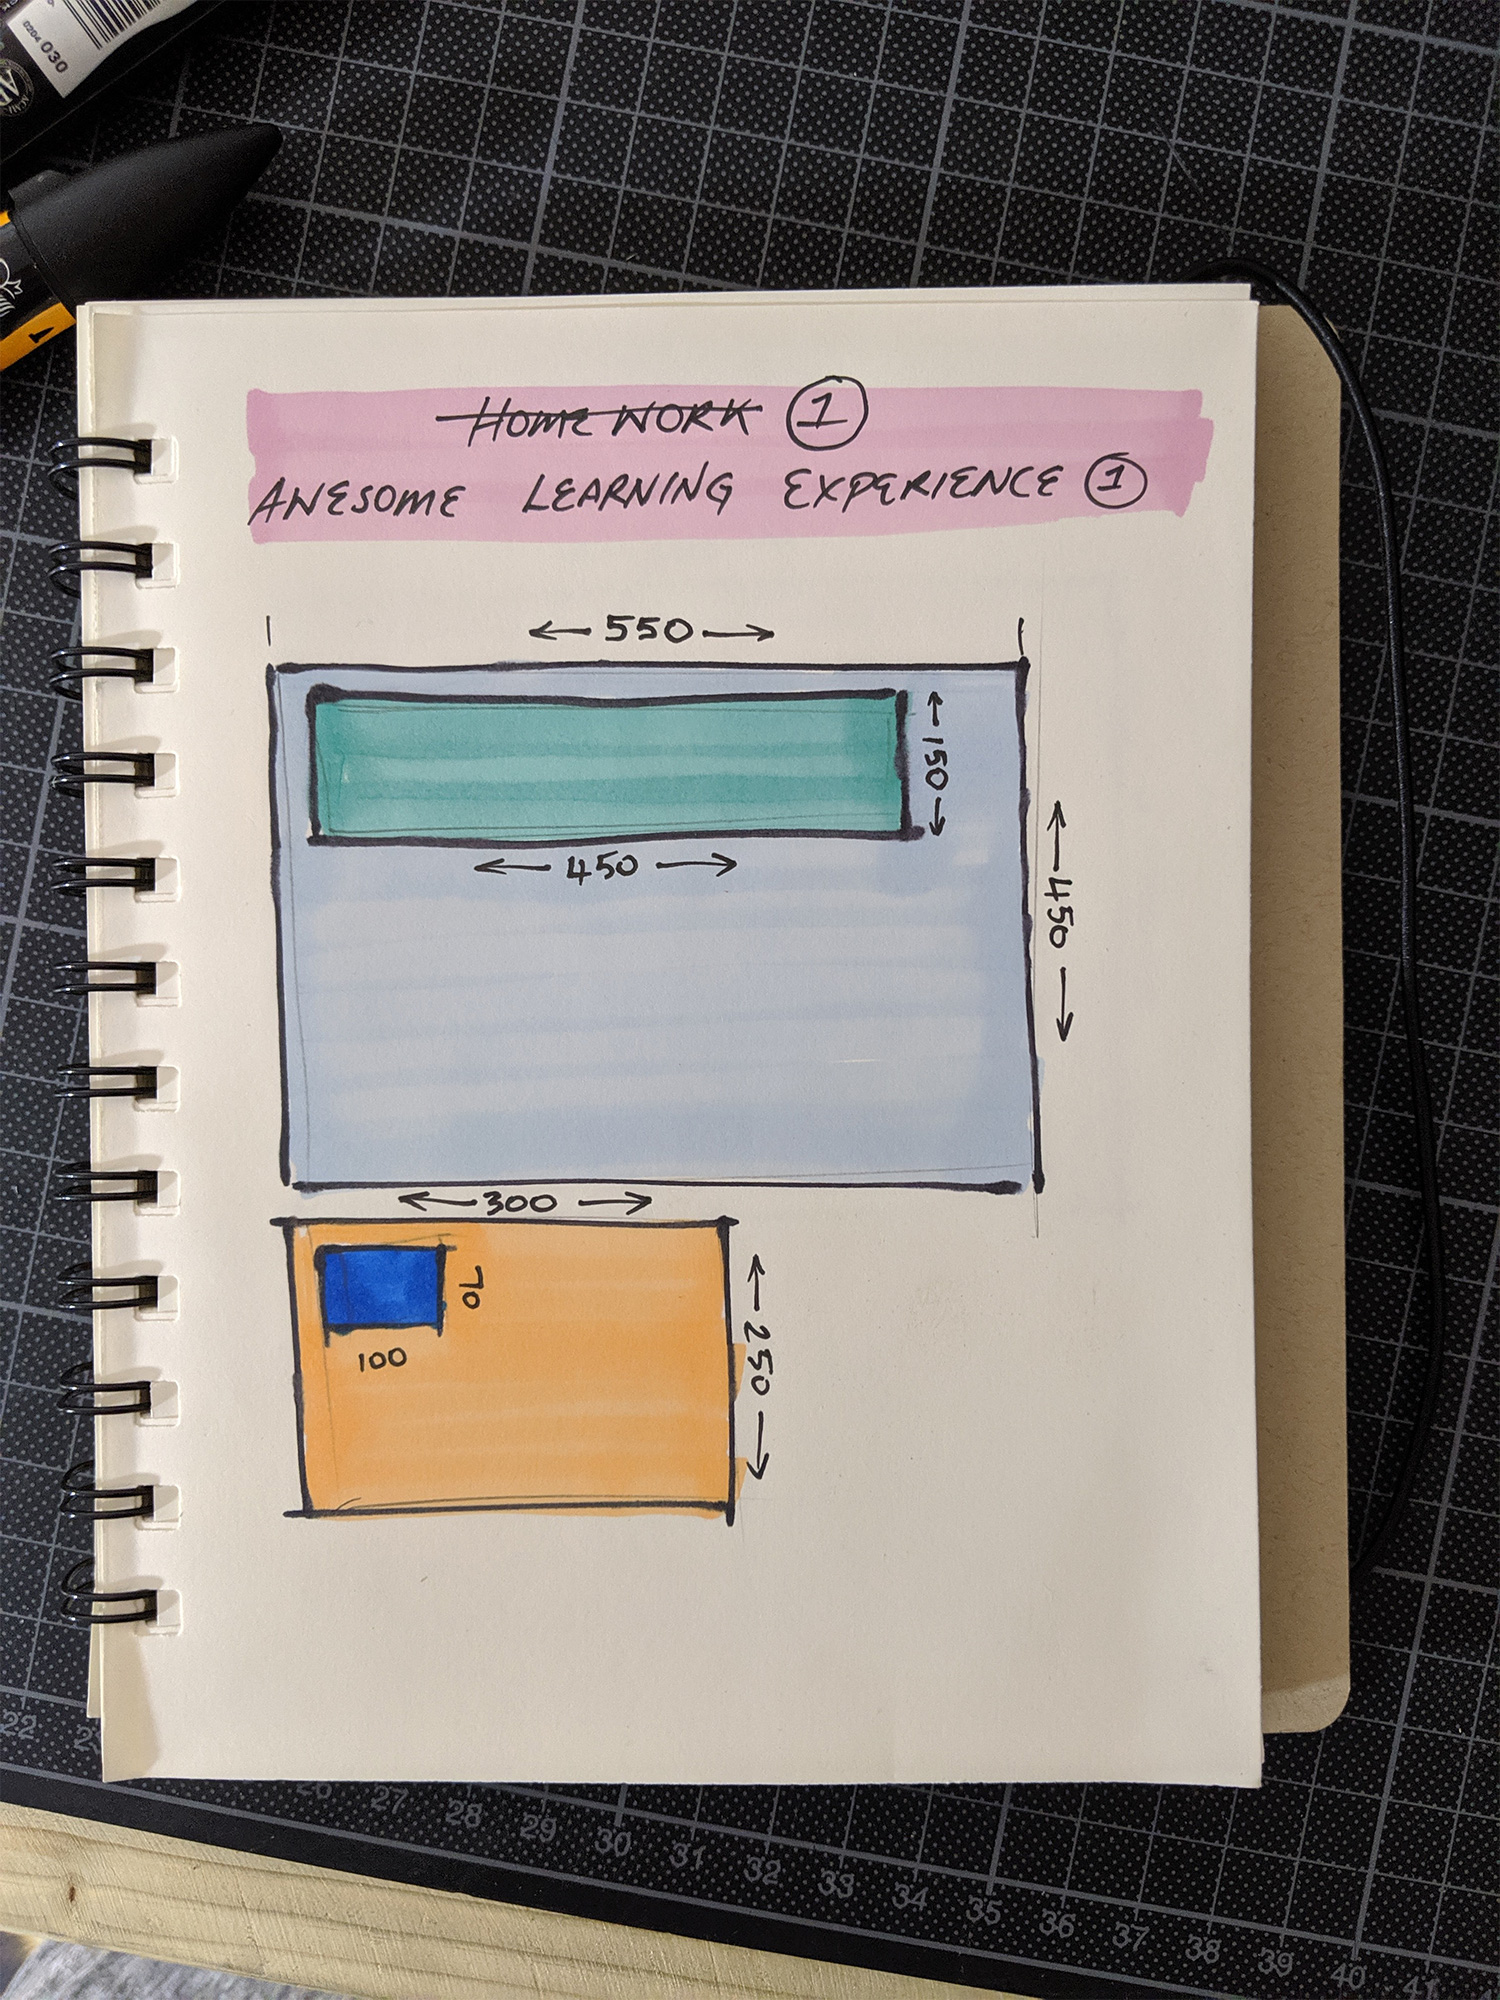 0204 030
HOME WORK 1
AWESOME LEARNING EXPERIENCE 1
550
150
450
450
300
70
100
250
22
26 27 28 29 30 31 32 33 34 35 36 37 38 39 40 41